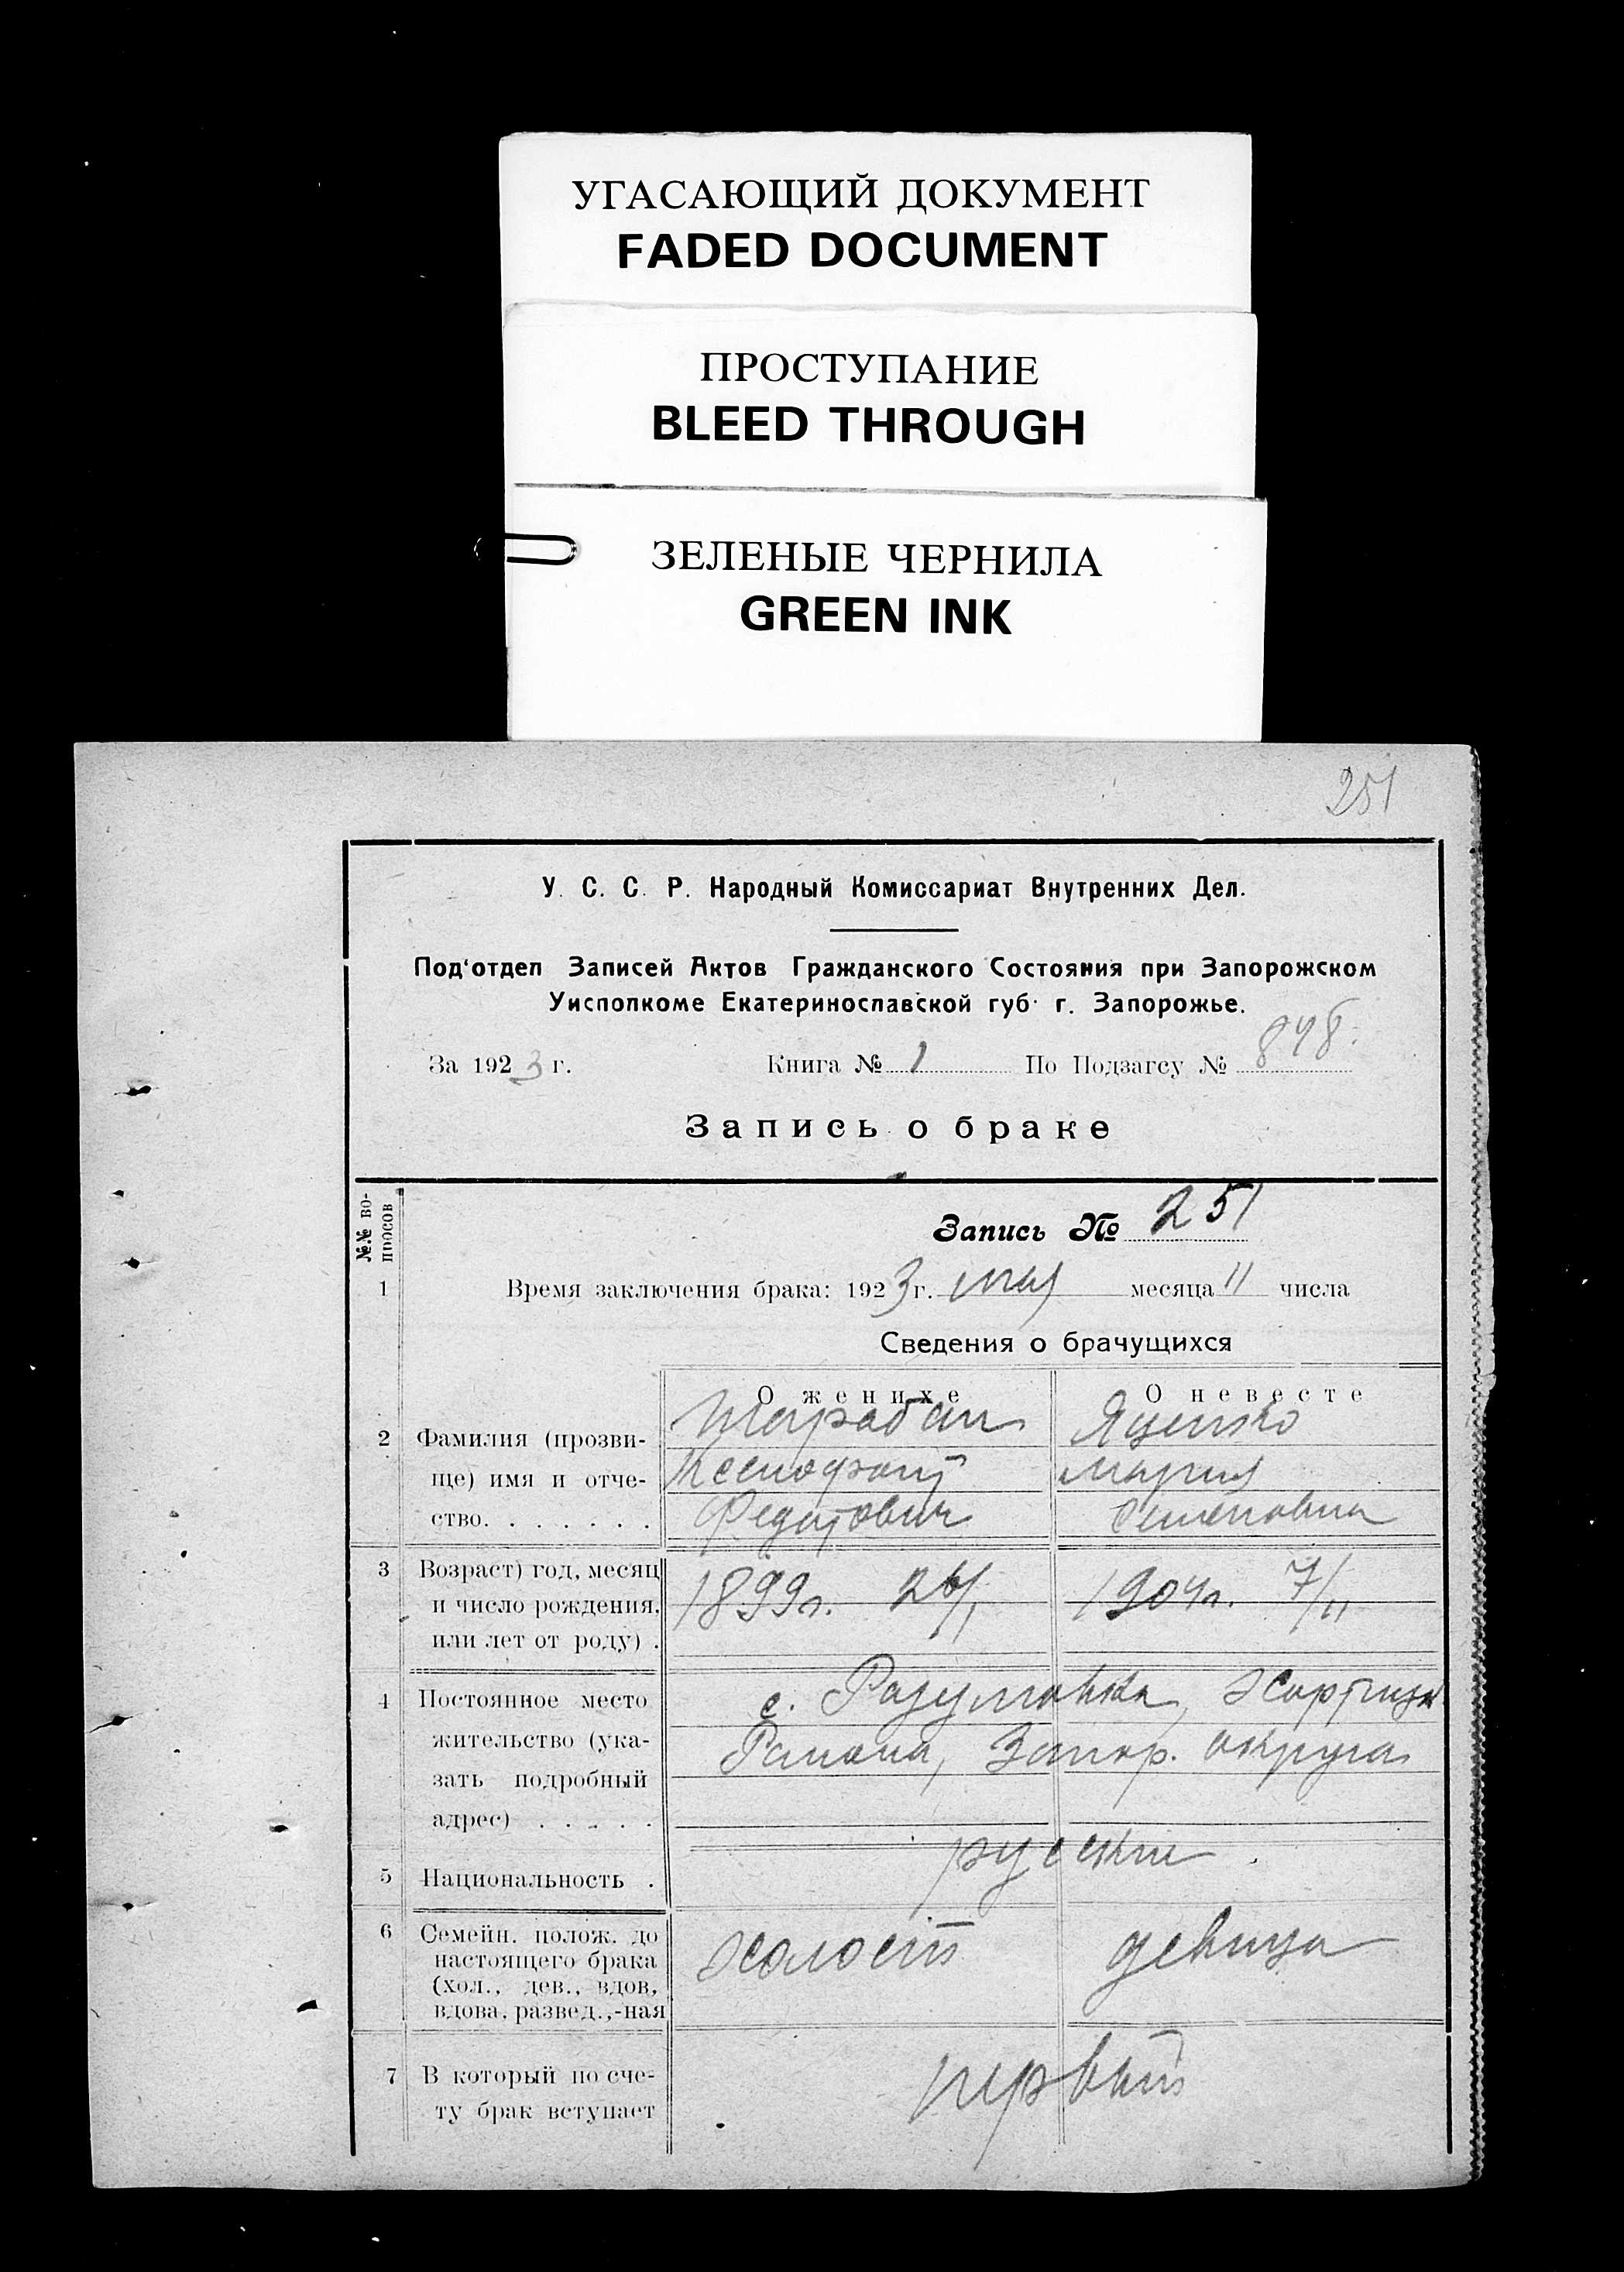 УГАСАЮЩИЙ ДОКУМЕНТ
FADED DOCUMENT
ПРОСТУПАНИЕ
BLEED THROUGH
ЗЕЛЕНЫЕ ЧЕРНИЛА
GREEN INK
251
У. С. С. Р. Народный Комиссариат Внутренних Дел.
Под'отдел Записей Актов Гражданского Состояния при Запорожском
Уисполкоме Екатеринославской губ. г. Запорожье.
За 1923 г. Книга № 1 По Подзагсу № 848.
Запись о браке
№№ во-
просов
Запись № 251
1 Время заключения брака: 1923 г. мая месяца 11 числа
Сведения о брачущихся
О женихе О невесте
2 Фамилия (прозви-
ще) имя и отче-
ство. . . . . . .
Ксенофонт
Федотович
Яценко
Мария
Семеновна
3 Возраст) год, месяц
и число рождения,
или лет от роду) .
1899г. 26/I 1904г. 7/II
4 Постоянное место
жительство (ука-
зать подробный
адрес) . . . . .
с. Разумовка, Хортицк.
Района, Запор. округа
5 Национальность .
русские
6 Семейн. полож. до
настоящего брака
(хол., дев., вдов,
вдова, развед.,-ная
холост девица
7 В который по сче-
ту брак вступает
первый